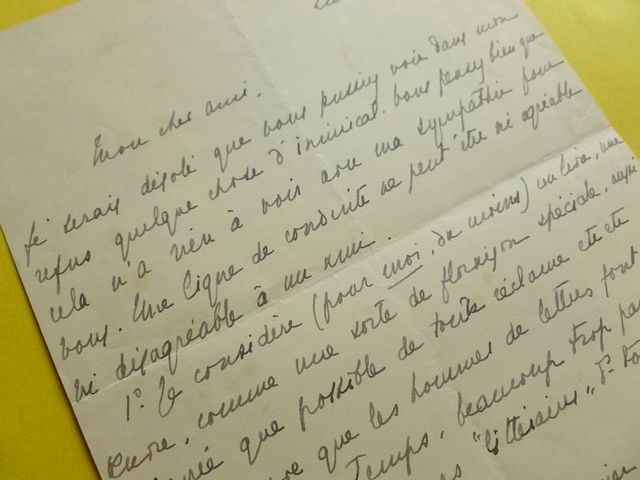 Mon cher ami,
Je serais désolé que vous puissiez voir dans mon
refus quelque chose d'inimical. Vous pensez bien que
cela n'a rien à voir avec ma sympathie pour
vous. Une ligne de conduite ne peut être ni agréable
ni désagréable à un ami.
1º. Je considère (pour moi, du moins) un livre, une
comme une sorte de floraison spéciale, aussi
que possible de toute réclame etc etc
que les hommes de lettres font
Temps, beaucoup trop pa
"littéraires"